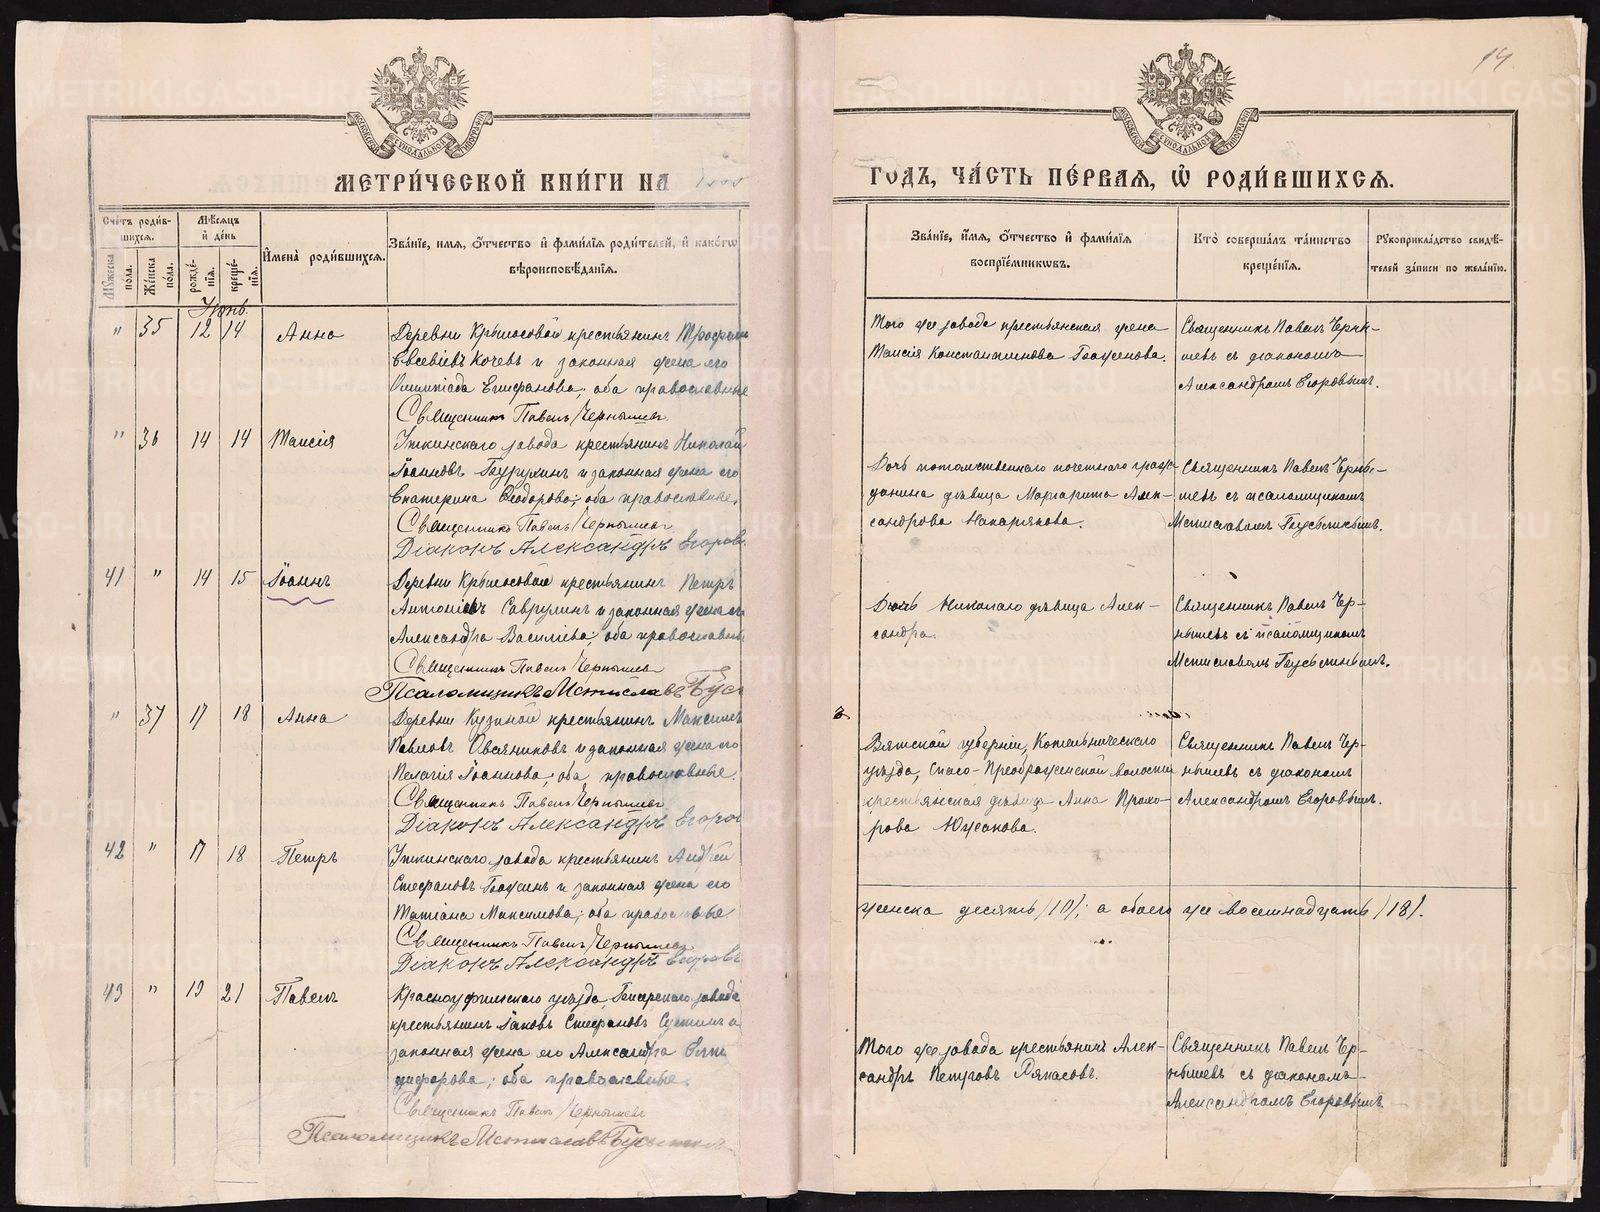 14.
МЕТРИ́ЧЕСКОЙ КНИ́ГИ НА
ГОДЪ, ЧА́СТЬ ПЕ́РВАЯ, Ѽ РОДИ́ВШИХСЯ.
Сче́тъ роди́в-
шихся.
Мѣ́сяцъ
и҆ де́нь
Му́жеска пола.
Же́нска пола.
рожде́-
нїя.
креще́-
нїя.
И҆мена̀ роди́вшихся.
Зва́нїе, и҆мя, ѻ҆́тчество и҆ фами́лїя роди́телей, и҆ како́гѡ
вѣроисповѣ́данїя.
Зва́нїе, и҆́мя, ѻ҆́тчество и҆ фами́лїя
воспрїе́мникѡвъ.
Кто̀ соверша́лъ та́инство
креще́нїя.
Рꙋкоприкла́дство свидѣ́-
телей за́писи по жела́нїю.
" 35 12 14 Анна
Деревни Крылосовой крестьянинъ
Евсевіевъ Кочевъ и законная жена его
Олимпіада Епифанова; оба православные
Священникъ Павелъ Чернышевъ
Того же завода крестьянская жена
Таисія Константинова
Священникъ Павелъ Черны-
шевъ съ діакономъ
Александромъ Егоровымъ.
" 36 14 14 Таисія
Уткинскаго завода крестьянинъ Николай
Іоанновъ и законная жена его
Екатерина Ѳеодорова; оба православные.
Священникъ Павелъ Чернышевъ
Діаконъ Александръ Егоровъ
Дочь потомственнаго почетнаго граж-
данина дѣвица Маргарита Алек-
сандрова
Священникъ Павелъ Черны-
шевъ съ псаломщикомъ
Мстиславомъ
41 " 14 15 Іоаннъ
Деревни Крылосовой крестьянинъ Петръ
Антоніевъ Саврулинъ и законная жена его
Александра Василіева; оба православные
Священникъ Павелъ Чернышевъ
Псаломщикъ Мстиславъ
Дочь Николаю дѣвица Алек-
сандра.
Священникъ Павелъ Чер-
нышевъ съ псаломщикомъ
Мстиславомъ
" 37 17 18 Анна
Деревни Кузиной крестьянинъ Максимъ
Павловъ Овсянниковъ и законная жена его
Пелагія Іоаннова; оба православные.
Священникъ Павелъ Чернышевъ
Діаконъ Александръ Егоровъ
Вятской губерніи, Котельническаго
уѣзда, Спасо-Преображенской волости
крестьянская дѣвица Анна Прохо-
рова Южакова.
Священникъ Павелъ Чер-
нышевъ съ діакономъ
Александромъ Егоровымъ.
42 " 17 18 Петръ
Уткинскаго завода крестьянинъ Андрей
Стефановъ и законная жена его
Татіана Максимова; оба православные
Священникъ Павелъ Чернышевъ
Діаконъ Александръ Егоровъ
женска десять /10/; а обоего же восемнадцать /18/.
43 " 19 21 Павелъ
Красноуфимскаго уѣзда, Бисерскаго завода
крестьянинъ Іаковъ Стефановъ и
законная жена его Александра
оба православные.
Священникъ Павелъ Чернышевъ
Псаломщикъ Мстиславъ
Того же завода крестьянинъ Алек-
сандръ Петровъ
Священникъ Павелъ Чер-
нышевъ съ діакономъ
Александромъ Егоровымъ.
METRIKI.GASO-URAL.RU